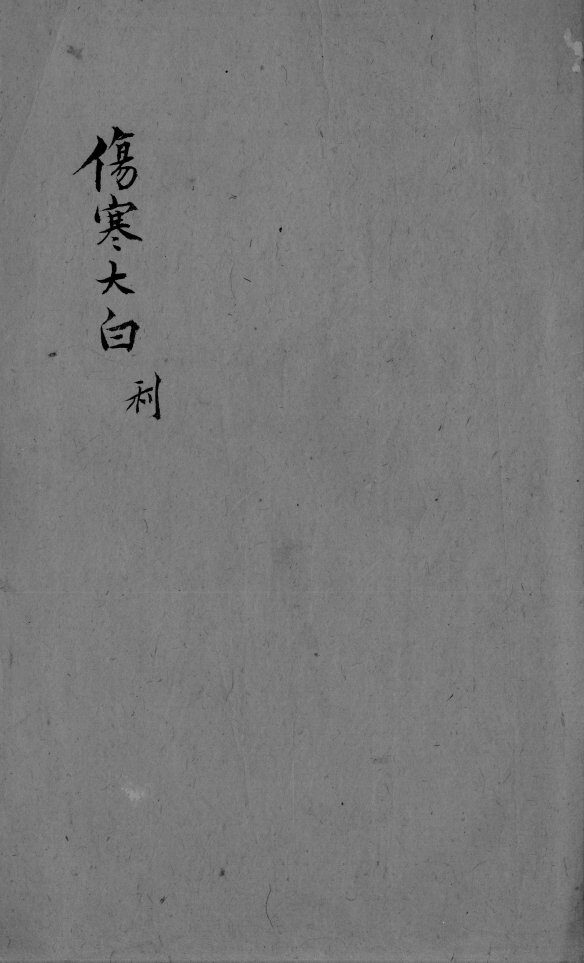 傷寒大白
利